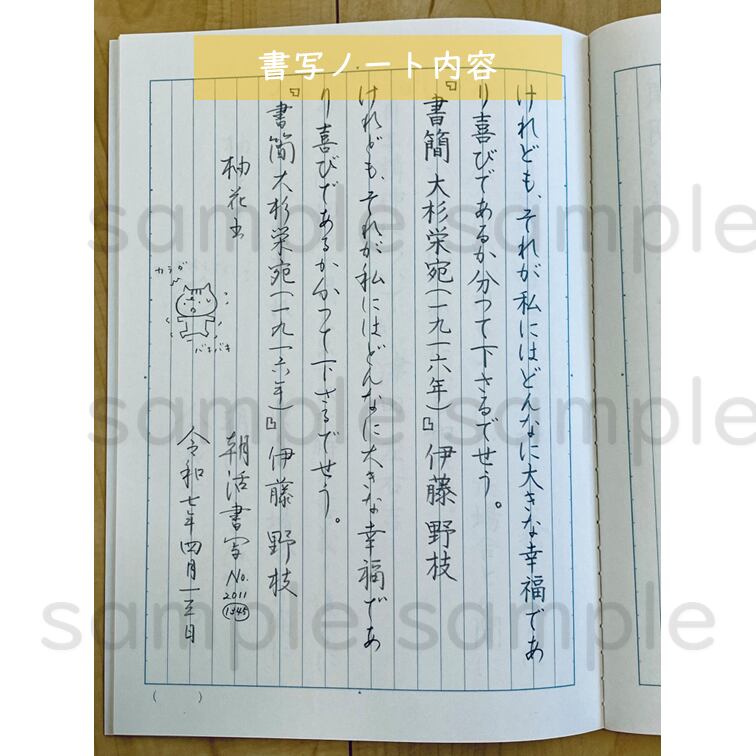 書写ノート内容
けれども、それが私にはどんなに大きな幸福であ
り喜びであるか分つて下さるでせう。
『書簡 大杉栄宛(一九一六年)』伊藤 野枝
けれども、それが私にはどんなに大きな幸福であ
り喜びであるか分つて下さるでせう。
『書簡 大杉栄宛(一九一六年)』伊藤 野枝
柚花
カラダ
バキバキ
朝活書写 No.
2011
1545
令和七年四月一三日
( )
sample sample
sample sample
sample sample